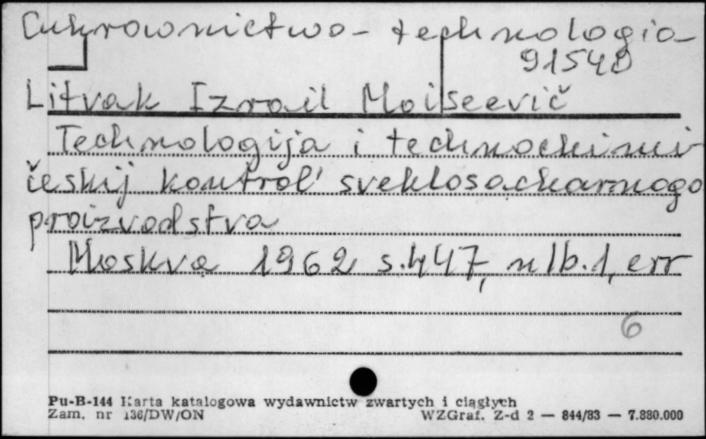 Cukrownictwo - technologia
91540
Litvak Izrail Moiseevič
Technologija i technochimi-
českij kontrol' sveklosacharnogo
proizvodstva
Moskva 1962 s.447, nlb.1, err
6
Pu-B-144 Karta katalogowa wydawnictw zwartych i ciągłych
Zam. nr 136/DW/ON WZGraf. Z-d 2 — 844/83 — 7.880.000